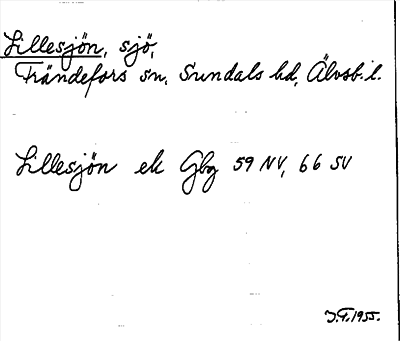 Lillesjön, sjö,
Frändefors sn, Sundals hd, Älvsb. l.
Lillesjön ek Gbg 59 NV, 66 SV
J.F. 1955.